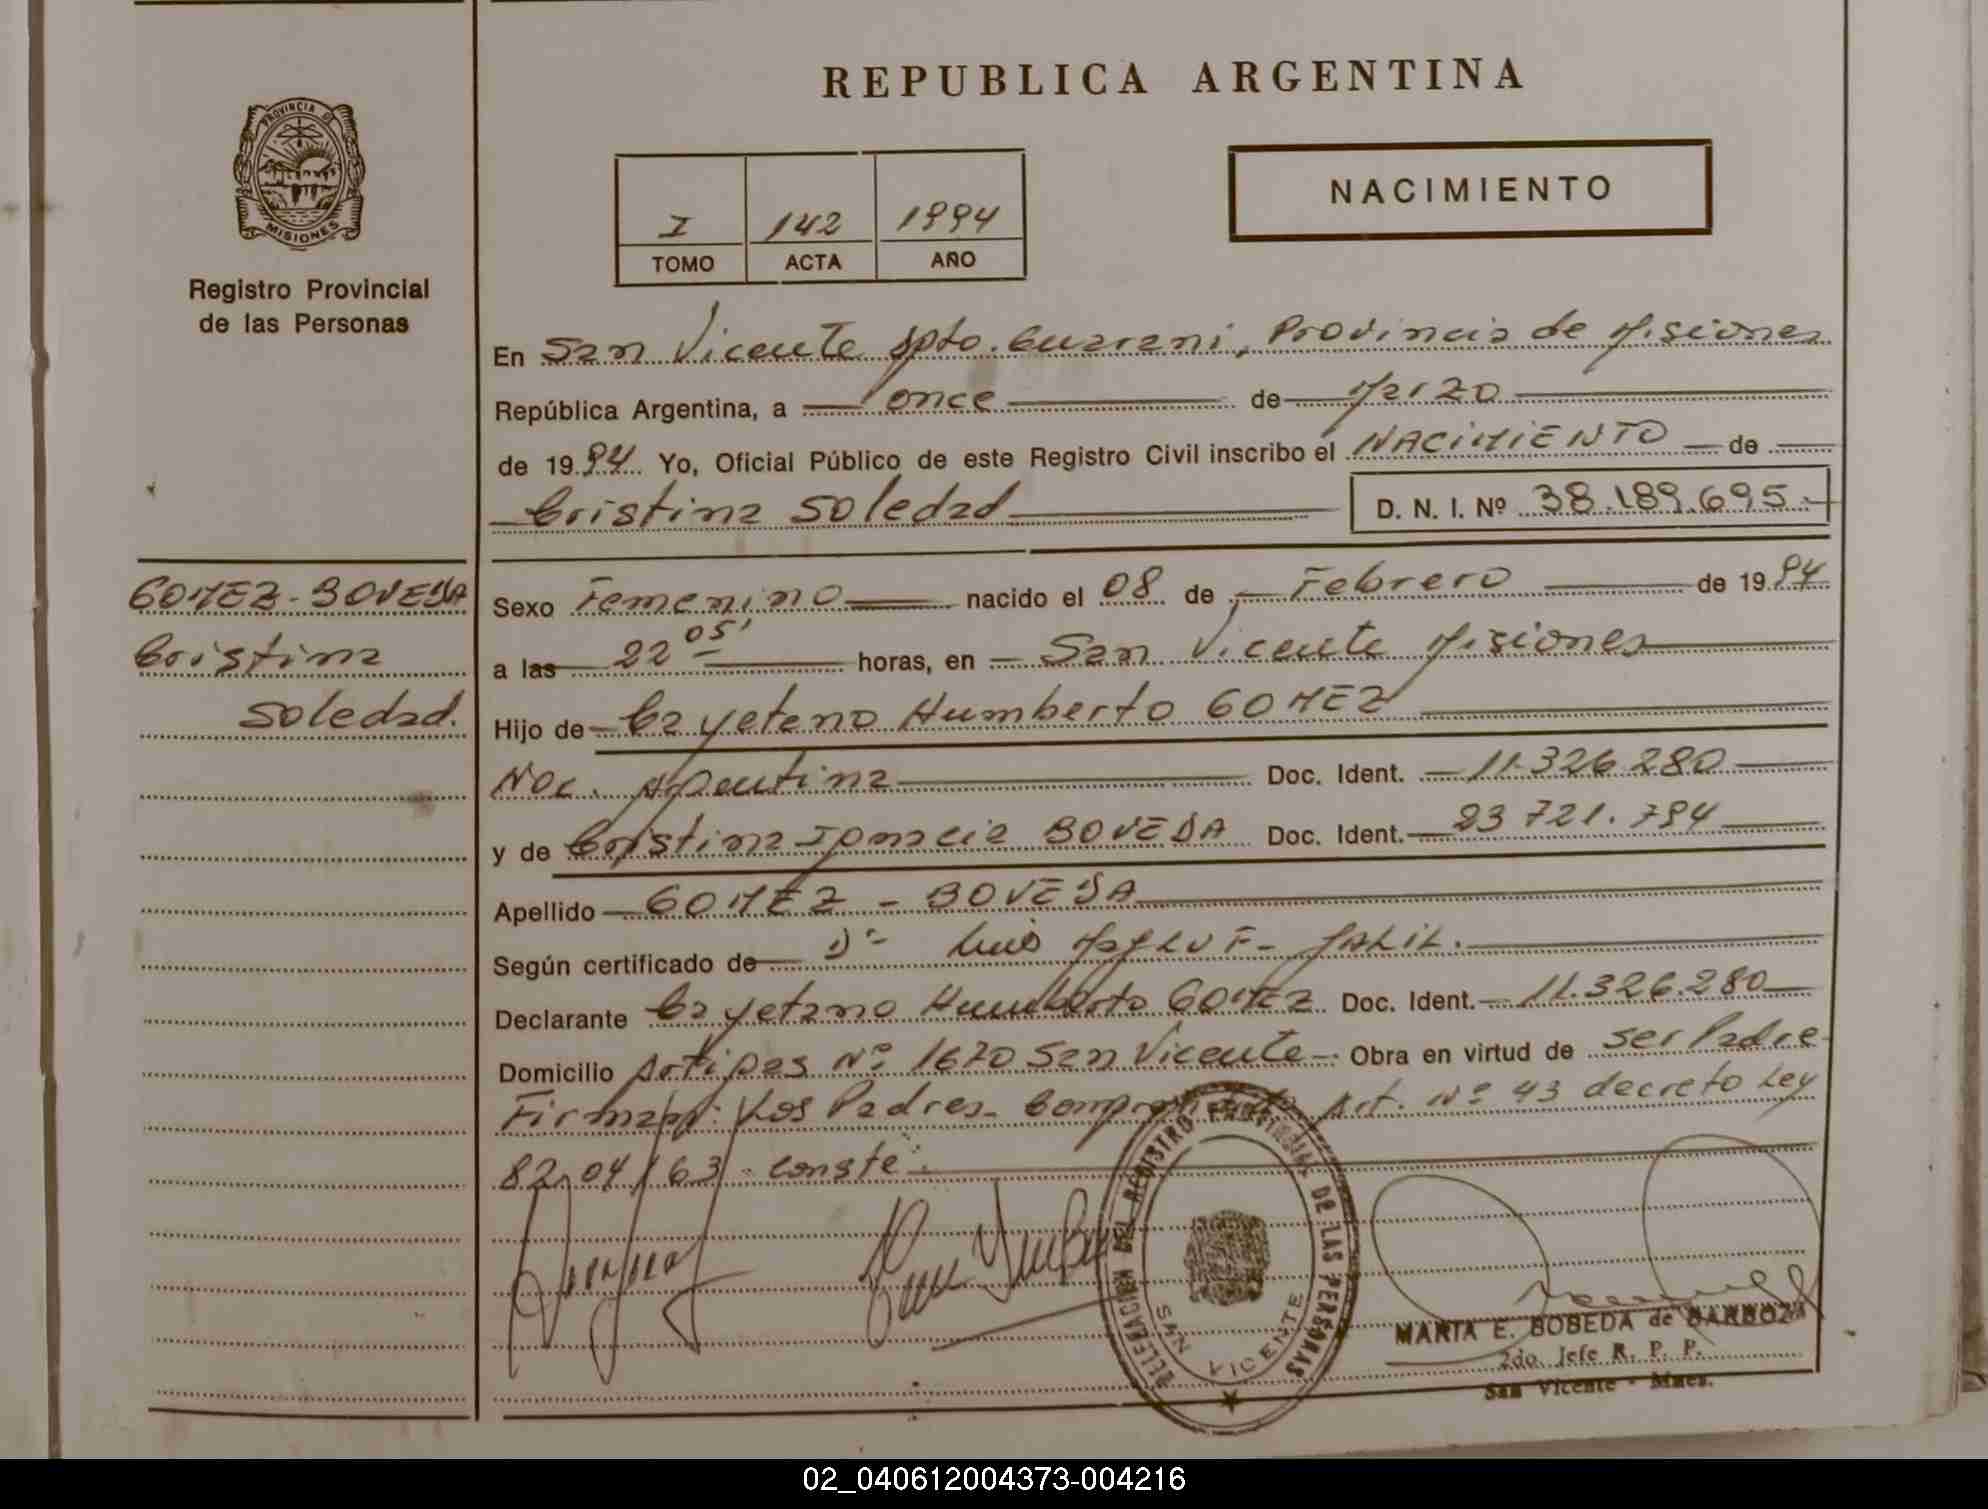 REPUBLICA ARGENTINA
PROVINCIA DE
MISIONES
Registro Provincial
de las Personas
I 142 1994
TOMO ACTA AÑO
NACIMIENTO
En San Vicente Dpto. Guarani, Provincia de Misiones
República Argentina, a once de Marzo
de 1994 Yo, Oficial Público de este Registro Civil inscribo el NACIMIENTO de
Cristina Soledad D. N. I. Nº 38.189.695.-
GOMEZ-BOVEDA
Cristina
Soledad.
Sexo Femenino nacido el 08 de Febrero de 1994
a las 22 05' horas, en San Vicente Misiones
Hijo de Cayetano Humberto GOMEZ
Nac. Argentina Doc. Ident. 11.326.280
y de Cristina Ignacia BOVEDA Doc. Ident. 23.721.794
Apellido GOMEZ - BOVEDA
Según certificado de Dr Luis
Declarante Cayetano Humberto GOMEZ Doc. Ident. 11.326.280
Domicilio Artigas Nº 1670 San Vicente Obra en virtud de ser Padre
Firman: Los Padres. Art. Nº 43 decreto Ley
8204/63. conste.
DELEGACION DEL REGISTRO PROVINCIAL DE LAS PERSONAS
SAN VICENTE
MARIA E. BOBEDA de BARBOZA
2do. Jefe R. P. P.
San Vicente - Mnes.
02_040612004373-004216